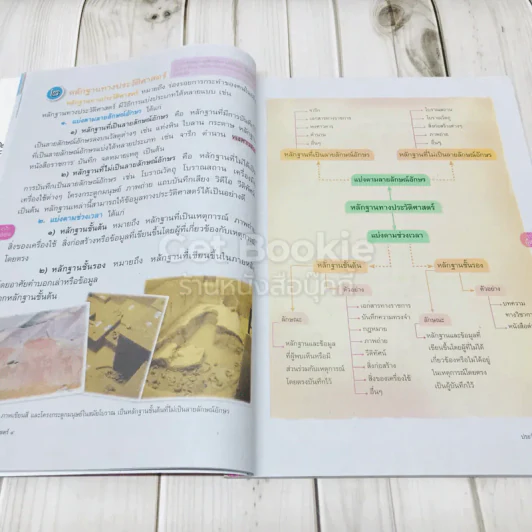 ๒ หลักฐานทางประวัติศาสตร์
หลักฐานทางประวัติศาสตร์ หมายถึง ร่องรอยการกระทำของคน
หลักฐานทางประวัติศาสตร์ มีวิธีการแบ่งประเภทได้หลายแบบ เช่น
๑. แบ่งตามลายลักษณ์อักษร ได้แก่
๑) หลักฐานที่เป็นลายลักษณ์อักษร คือ หลักฐานที่มีการบันทึก
เป็นลายลักษณ์อักษรลงบนวัสดุต่างๆ เช่น แท่งหิน ใบลาน กระดาษ
ที่เป็นลายลักษณ์อักษรได้หลายประเภท เช่น จารึก ตำนาน
หนังสือราชการ บันทึก จดหมายเหตุ เป็นต้น
๒) หลักฐานที่ไม่เป็นลายลักษณ์อักษร คือ หลักฐานที่ไม่ได้
การบันทึกเป็นลายลักษณ์อักษร เช่น โบราณวัตถุ โบราณสถาน เครื่องมือ
เครื่องใช้ต่างๆ โครงกระดูกมนุษย์ ภาพถ่าย แถบบันทึกเสียง วีดิโอ
เป็นต้น หลักฐานเหล่านี้สามารถให้ข้อมูลทางประวัติศาสตร์ได้เป็นอย่างดี
๒. แบ่งตามช่วงเวลา ได้แก่
๑) หลักฐานชั้นต้น หมายถึง หลักฐานที่เป็นเหตุการณ์
สิ่งของเครื่องใช้ สิ่งก่อสร้างหรือข้อมูลที่เขียนขึ้นโดยผู้ที่เกี่ยวข้องกับเหตุการณ์
โดยตรง
๒) หลักฐานชั้นรอง หมายถึง หลักฐานที่เขียนขึ้นในภายหลัง
โดยอาศัยคำบอกเล่าหรือข้อมูล
จากหลักฐานชั้นต้น
ภาพเขียนสี และโครงกระดูกมนุษย์ในสมัยโบราณ เป็นหลักฐานชั้นต้นที่ไม่เป็นลายลักษณ์อักษร
Get Bookie
ร้านหนังสือบุ๊คกี้
จารึก
เอกสารทางราชการ
จดหมายเหตุ
ตำนาน
อื่นๆ
โบราณสถาน
โบราณวัตถุ
อื่นๆ
หลักฐานที่เป็นลายลักษณ์อักษร
หลักฐานที่ไม่เป็นลายลักษณ์อักษร
แบ่งตามลายลักษณ์อักษร
หลักฐานทางประวัติศาสตร์
แบ่งตามช่วงเวลา
หลักฐานชั้นต้น
หลักฐานชั้นรอง
ลักษณะ
หลักฐานและข้อมูล
ที่ผู้พบเห็นหรือมี
ส่วนร่วมกับเหตุการณ์
โดยตรงบันทึกไว้
ตัวอย่าง
เอกสารทางราชการ
บันทึกความทรงจำ
กฎหมาย
ภาพถ่าย
วีดิทัศน์
สิ่งก่อสร้าง
สิ่งของเครื่องใช้
อื่นๆ
ลักษณะ
หลักฐานและข้อมูลที่
เขียนขึ้นโดยผู้ที่ไม่ได้
เกี่ยวข้องหรือไม่ได้อยู่
ในเหตุการณ์โดยตรง
เป็นผู้บันทึกไว้
ตัวอย่าง
บทความ
ทางวิชาการ